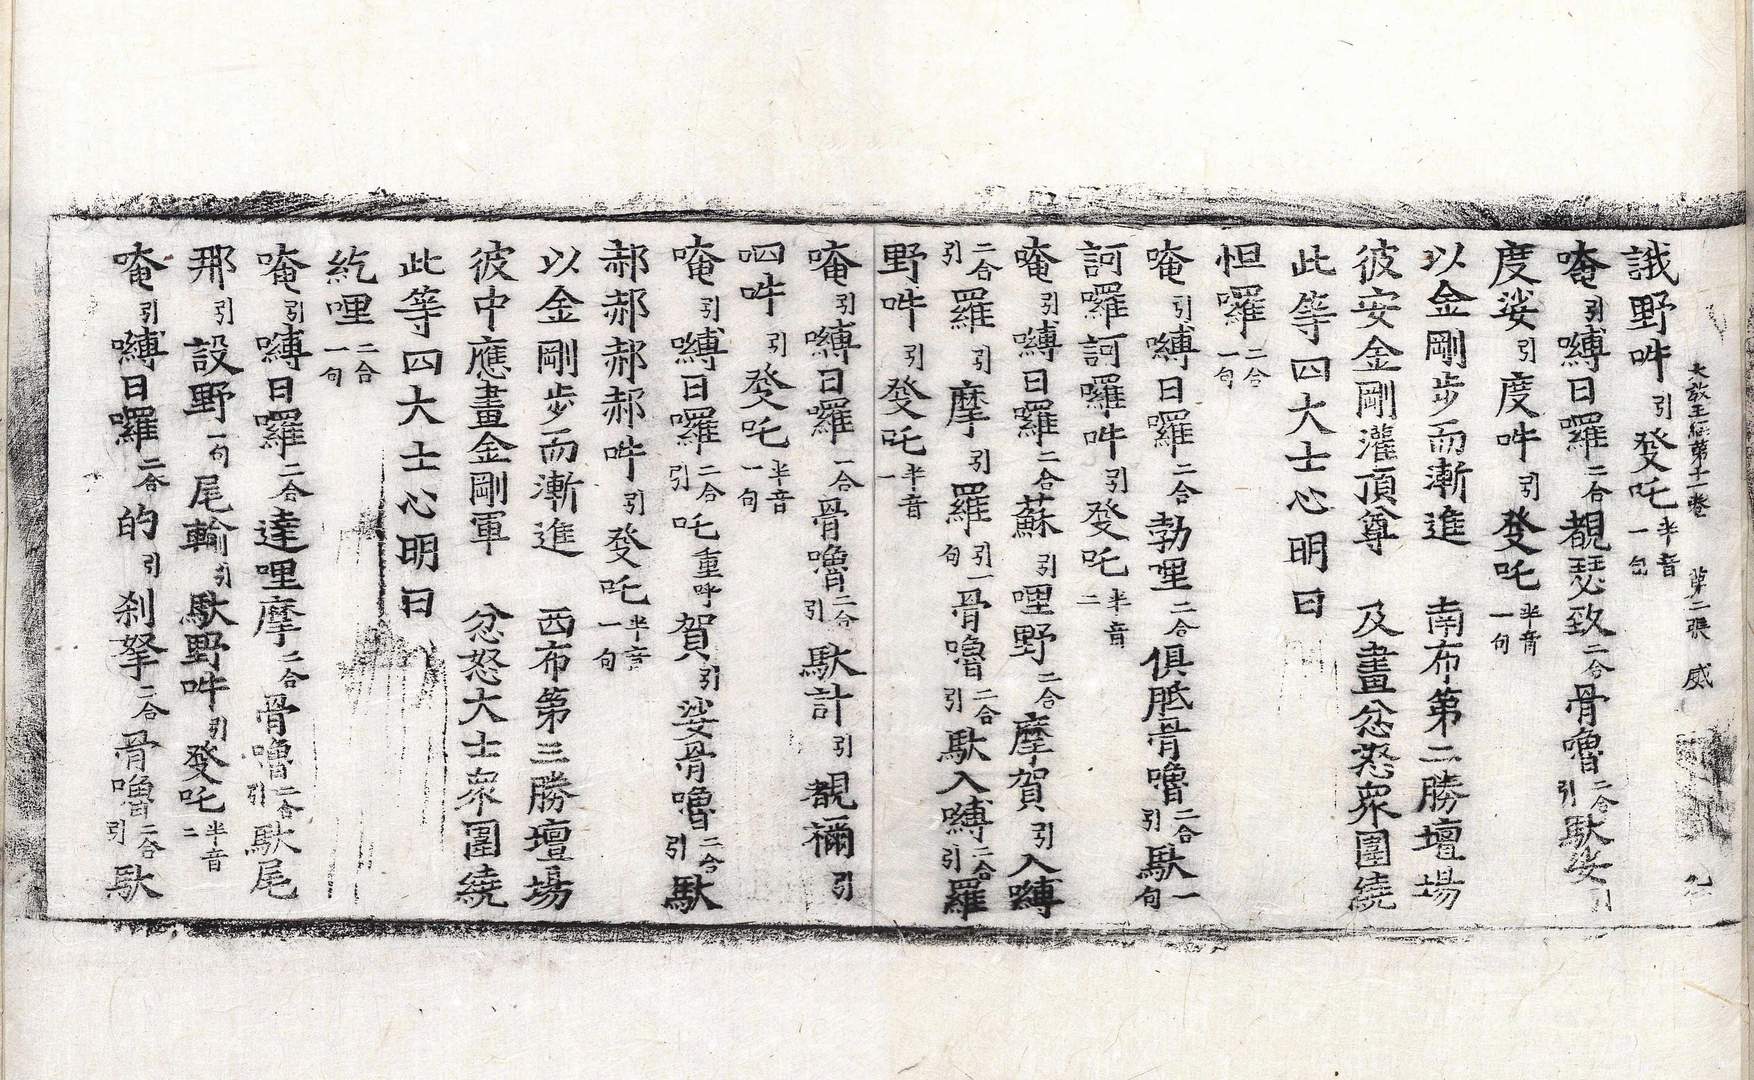 大教王經第十一卷　第二張　威
誐野吽引發吒半音一句
唵引嚩日囉二合覩瑟致二合骨嚕二合引馱娑引
度娑引度吽引發吒半音一句
以金剛步而漸進　南布第二勝壇場
彼安金剛灌頂尊　及畫忿怒衆圍繞
此等四大士心明曰
怛囉二合一句
唵引嚩日囉二合勃哩二合俱胝骨嚕二合引馱一句
訶囉訶囉吽引發吒半音二
唵引嚩日囉二合蘇引哩野二合摩賀引入嚩
二合引羅引摩引羅引一句骨嚕二合引馱入嚩二合引羅
野吽引發吒半音一
唵引嚩日囉一合骨嚕二合引馱計引覩禰引
呬吽引發吒半音一句
唵引嚩日囉二合引吒重呼賀引娑骨嚕二合引馱
郝郝郝郝吽引發吒半音一句
以金剛步而漸進　西布第三勝壇場
彼中應畫金剛軍　忿怒大士衆圍繞
此等四大士心明曰
紇哩二合一句
唵引嚩日囉二合達哩摩二合骨嚕二合引馱尾
那引設野一句尾輸引馱野吽引發吒半音二
唵引嚩日囉二合的引刹拏二合骨嚕二合引馱